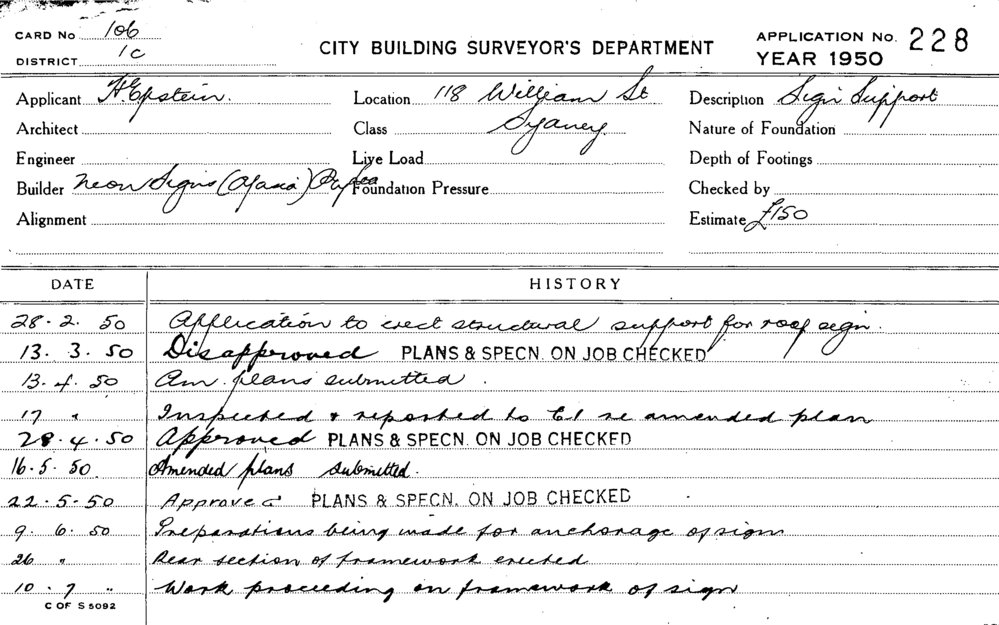 CARD No 106
DISTRICT 1C
CITY BUILDING SURVEYOR'S DEPARTMENT
APPLICATION No. 228
YEAR 1950
Applicant H. Epstein.
Location 118 William St
Description Sign Support
Architect
Class Sydney.
Nature of Foundation
Engineer
Live Load
Depth of Footings
Builder Neon Signs (A/asia)
Foundation Pressure
Checked by
Alignment
Estimate £150
DATE HISTORY
28. 2. 50 Application to erect structural support for roof sign.
13. 3. 50 Disapproved PLANS & SPECN. ON JOB CHECKED
13. 4. 50 Am. plans submitted.
17 " Inspected & reported to E1 re amended plan
28. 4. 50 Approved PLANS & SPECN. ON JOB CHECKED
16. 5. 50. Amended plans submitted.
22. 5. 50 Approved PLANS & SPECN. ON JOB CHECKED
9. 6. 50 Preparations being made for anchorage of sign
26 " Rear section of framework erected
10. 7 " Work proceeding on framework of sign
C OF S 5092